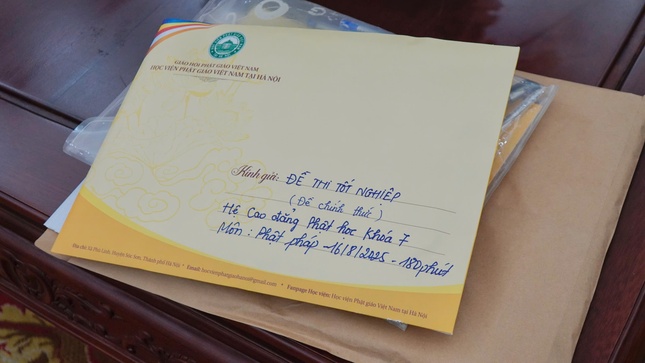 GIÁO HỘI PHẬT GIÁO VIỆT NAM
HỌC VIỆN PHẬT GIÁO VIỆT NAM TẠI HÀ NỘI
Kính gửi: ĐỀ THI TỐT NGHIỆP
(Đề chính thức)
Hệ Cao đẳng Phật học Khóa 7
Môn: Phật pháp - 16/8/2025 - 180 phút
Địa chỉ: Xã Phù Linh, Huyện Sóc Sơn, Thành phố Hà Nội * Email: * Fanpage Học viện: Học viện Phật giáo Việt Nam tại Hà Nội